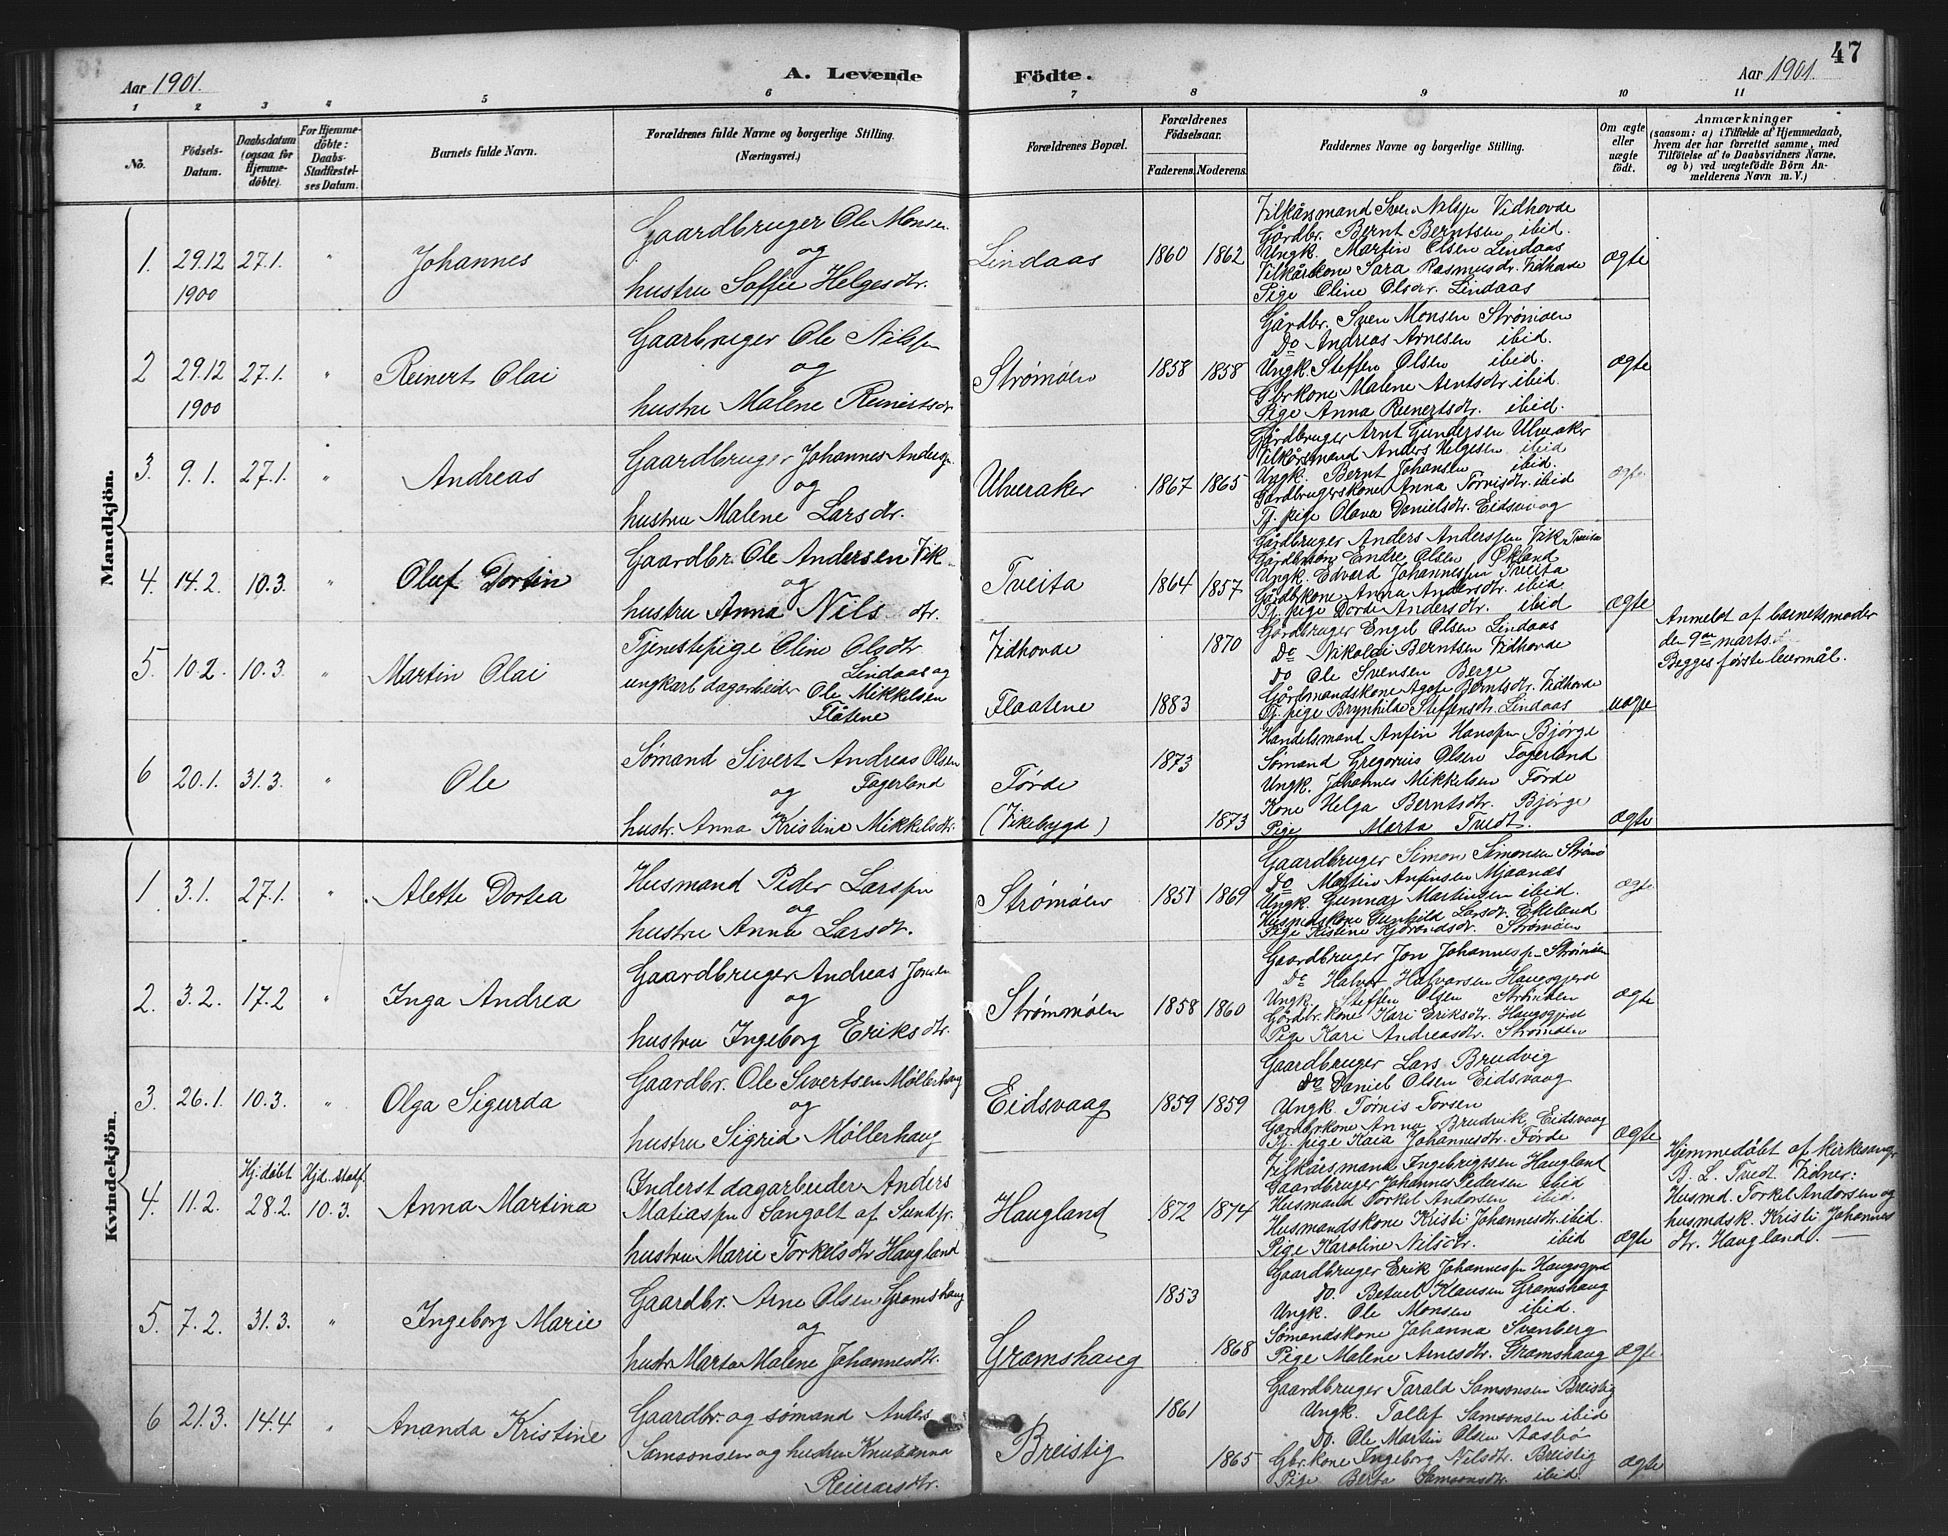 Aar 1901.
A. Levende Födte.
47
Aar 1901.
1 2 3 4 5 6 7 8 9 10 11
No.
Födsels-Datum.
Daabsdatum (ogsaa for Hjemmedöbte).
For Hjemmedöbte: Daabs-Stadfæstelses Datum.
Barnets fulde Navn.
Forældrenes fulde Navne og borgerlige Stilling. (Næringsvei.)
Forældrenes Bopæl.
Forældrenes Födselsaar.
Faderens. Moderens.
Faddernes Navne og borgerlige Stilling.
Om ægte eller uægte födt.
Anmærkninger
(saasom: a) i Tilfælde af Hjemmedaab, hvem der har forrettet samme, med Tilföielse af to Daabsvidners Navne, og b) ved uægtefödte Börn Anmelderens Navn m. V.)
Mandkjön.
1. 29.12 1900 27.1. " Johannes
Gaardbruger Ole Monsen
og
hustru Soffie Helgesdtr.
Lindaas 1860 1862
Vilkårsmand Sven Nilsen Vidhovde
Gårdbr. Bernt Berntsen ibid.
Ungk. Martin Olsen Lindaas
Vilkårskone Sara Rasmusdr. Vidhovde
Pige Oline Olsdr. Lindaas
ægte
2 29.12 1900 27.1. " Reinert Olai
Gaarbruger Ole Nilsen
og
hustru Malene Reinertsdr
Strømøen 1858 1858
Gårdbr. Sven Monsen Strømøen
Do Andreas Arnesen ibid.
Ungk. Steffen Olsen ibid.
Gbrkone Malene Arntsdtr ibid.
Pige Anna Reinertsdtr. ibid.
ægte
3. 9.1. 27.1. " Andreas
Gaardbruger Johannes Andersen
og
hustru Malene Larsdtr.
Ulveraker 1867 1865
Gårdbruger Arnt Gundersen Ulveraker
Vilkårsmand Anders Helgesen ibid
Ungk. Bernt Johansen ibid.
Gardbrugerskone Anna Torvisdtr. ibid
Tj. pige Olava Danielsdtr. Eidsvaag
ægte
4. 14.2. 10.3. " Oluf Dortin
Gaardbr. Ole Andersen Vik
og
hustru Anna Nilsdtr.
Tveita 1864 1857
Gårdbruger Anders Anderssen Vik Tveita
Endre Olsen Økland
Ungk. Edvard Johannessen Tveita
Gårdbrkone Anna Andersdtr. ibid
Tj. pige Dorde Andersdtr. ibid
ægte
5. 10.2. 10.3. " Martin Olai
Tjenestepige Oline Olsdtr.
Lindaas og
ungkarl dagarbeider Ole Mikkelsen
Flåtene
Vidhovde 1870
Flaatene 1883
Gårdbruger Engel Olsen Lindaas
Do Nikolai Berntsen Vidhovde
Do Ole Svensen Berge
Gårdmandskone Berntsdtr. Vidhovde
Tj. pige Brynhilde Steffensdtr. Lindaas
uægte
Anmeldt af barnets moder
den 9de marts.
Begges første leiermål.
6 20.1. 31.3. " Ole
Sømand Sivert Andreas Olsen
og Fagerland
hustr. Anna Kristine Mikkelsdtr.
Førde (Vikebygd) 1873 1873
Handelsmand Anfin Hansen Bjørge
Sømand Gregorius Olsen Fagerland
Ungk. Johannes Mikkelsen Førde
Kone Helga Berntsdtr. Bjørge
Pige Marta Tvedt.
ægte
Kvindekjön.
1. 3.1. 27.1. " Alette Dortea
Husmand Peder Larsen
og
hustru Anna Larsdtr.
Strømøen 1851 1869
Gaardbruger Simon Simonsen Strømø
Do Martin Anfinsen Mjaanæs
Ungk. Gunnar Martinsen ibid.
Husmdskone Gunhild Larsdtr. Ekeland
Pige Kistine Strømøen
ægte
2. 3.2. 17.2 " Inga Andrea
Gaardbruger Andreas Jonsen
og
hustru Ingeborg Eriksdtr.
Strømmøen 1858 1860
Gaardbruger Jon Johannessen Strømøen
Do Halvor Halvorsen Haugsgjerd
Ungk. Steffen Olsen Strømøen
Gårdbr.kone Kari Eriksdtr. Haugsgjerd
Pige Kari Andreasdtr. Strømøen
ægte
3. 26.1. 10.3. " Olga Sigurda
Gaardbr. Ole Sivertsen Møllerhaug
og
hustru Sigrid Møllerhaug
Eidsvaag 1859 1859
Gaardbruger Lars Brudvig
Do Daniel Olsen Eidsvaag
Ungk. Tørnis Torsen
Gardbrkone Anna Brudvik Eidsvaag
Tj. pige Kaia Johannesdtr. Førde
ægte
4. 11.2. Hj.døbt 28.2. Hjd. stadf. 10.3. Anna Martina
Inderst dagarbeider Anders
Matiassen Sangolt af Sund pr.
hustru Marie Torkelsdtr Haugland
Haugland 1872 1874
Vilkårsmand Ingebrigtsen Haugland
Gaardbruger Johannes Pedersen ibid
Husmand Torkel Andersen ibid.
Husmandskone Kristi Johannesdtr. ibid.
Pige Karoline Nilsdtr. ibid
ægte
Hjemmedøbt af kirkesanger
B. L. Tvedt. Vidner:
Husmd. Torkel Andersen og
husmdsk. Kristi Johannes
dtr. Haugland.
5. 7.2. 31.3. " Ingeborg Marie
Gaardbr. Arne Olsen Gramshaug
og
hustr Marta Malene Johannesdtr.
Gramshaug 1853 1868
Gaardbruger Erik Johannessen Haugsgjerd
Do. Betuel Klausen Gramshaug
Ungk. Ole Monsen ibid.
Sømandskone Johanna Svanberg
Pige Malene Arnesdtr. Gramshaug
ægte
6 21.3. 14.4 " Ananda Kristine
Gaardbr. og sømand Anders
Samsonsen og hustru Knutanna
Reinarsdtr.
Breistig 1861 1865
Gaardbruger Tarald Samsonsen Breistig
Ungk. Tollef Samsonsen ibid
Do. Ole Martin Olsen Aasbø
Gbr.kone Ingeborg Nilsdtr. Breistig
Pige Berta Samsonsdtr. ibid.
ægte